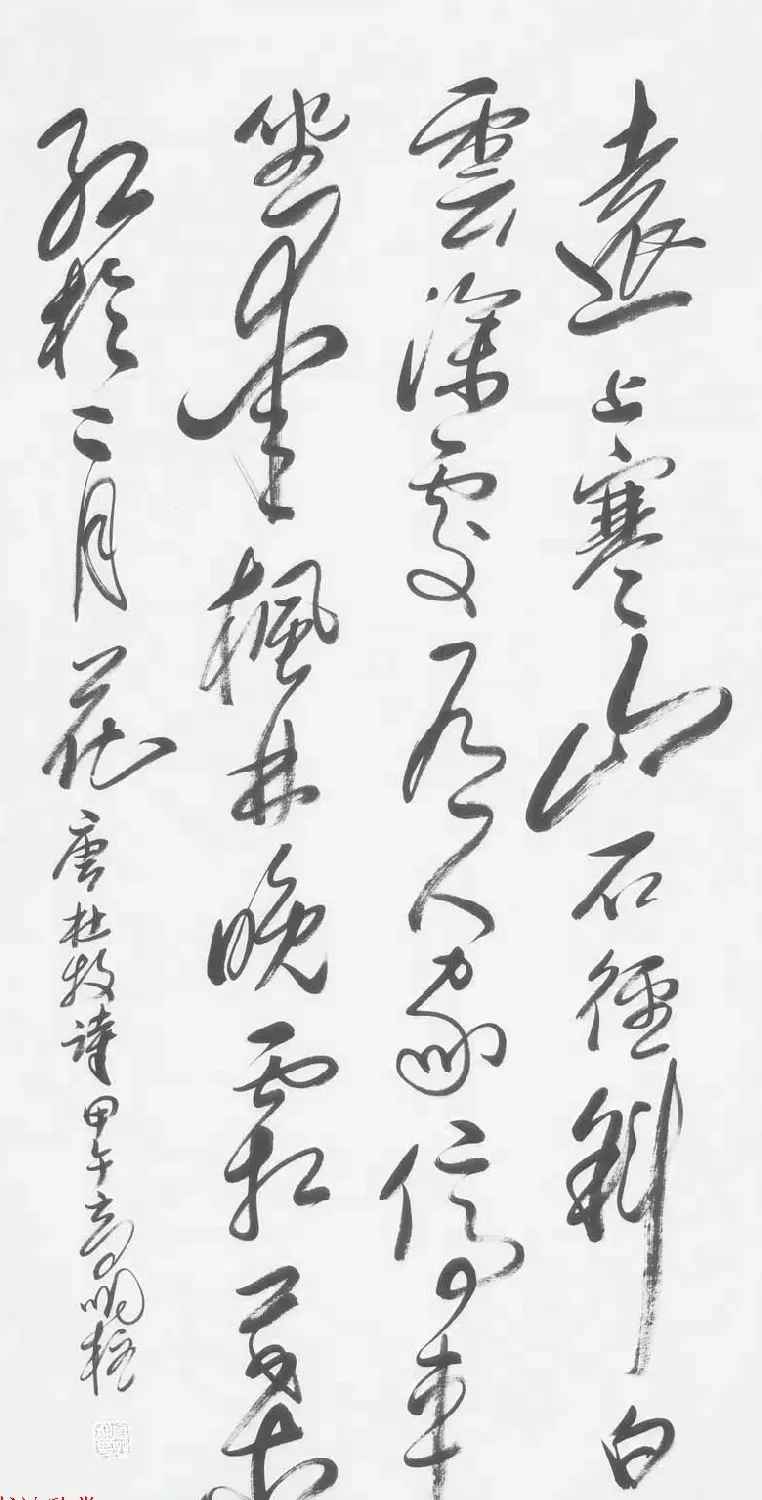 遠上寒山石徑斜白
雲深處有人家停車
坐愛楓林晚霜葉
紅於二月花
唐杜牧詩甲午高明